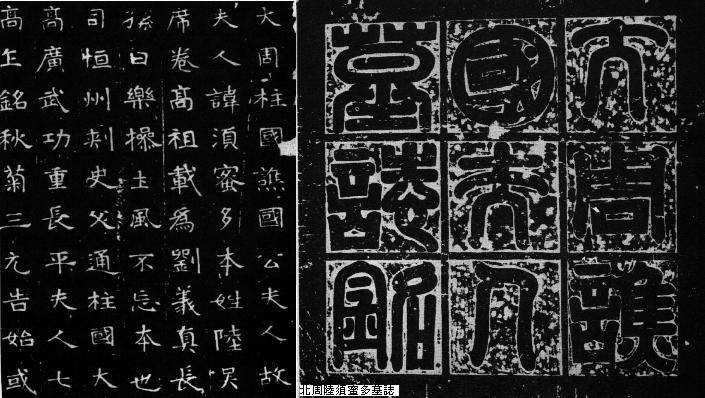 大周譙
國夫人
墓誌銘
大周柱國譙國公夫人故
夫人諱須蜜多本姓陸吳
席卷高祖載爲劉義真長
孫曰樂操土風不忘本也
司恒州刺史父通柱國大
高廣武功重長平夫人七
高銘秋菊三元告始或
北周陸須蜜多墓誌